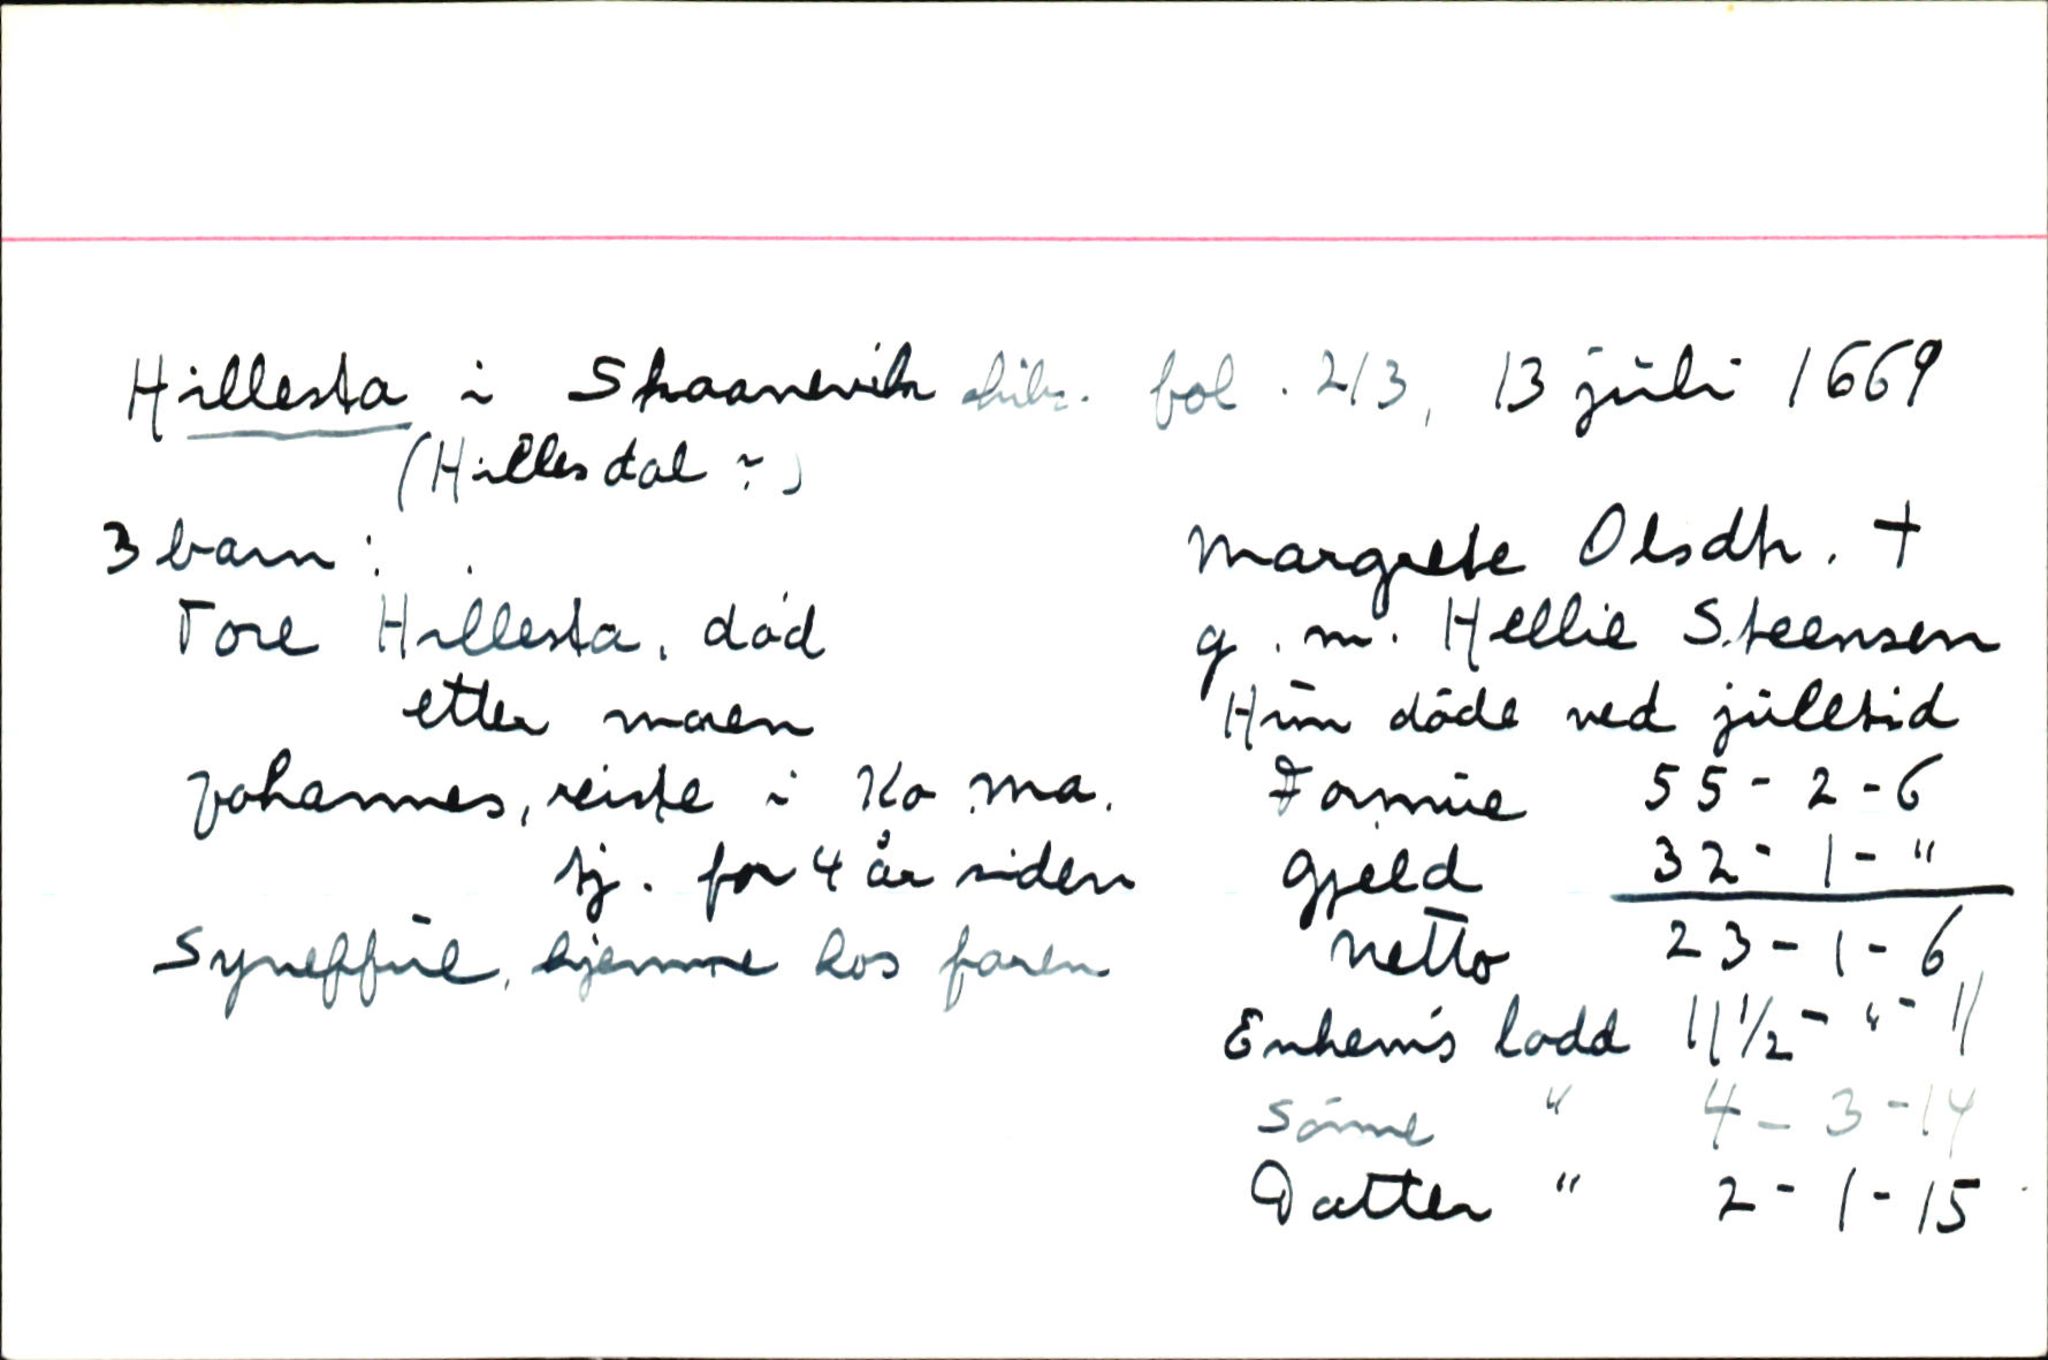 Hillesta i Skaanevik skibr. fol. 213, 13 juli 1669
(Hillesdal?)
3 barn:
Tore Hillesta, död
etter moren
Johannes, reiste i Ko ma.
tj. for 4 år siden
Syneffue, hjemme hos faren
Margrete Olsdtr. †
g. m. Hellie Steensen
Hun döde ved juletid
Formue 55 - 2 - 6
Gjeld 32 - 1 - "
Netto 23 - 1 - 6
Enkem's lodd 11 1/2 - " - 11
Sönne " 4 - 3 - 14
Datter " 2 - 1 - 15